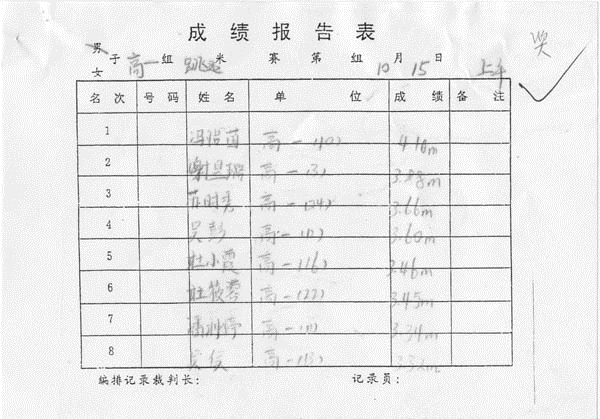 成绩报告表
男子 高一 组 跳远 米 赛 第 组 10月15日 上午
女
名次 号码 姓名 单位 成绩 备注
1 高一(10) 4.10m
2 高一(3) 3.88m
3 高一(24) 3.66m
4 吴彭 高一(1) 3.60m
5 杜小霞 高一(16) 3.46m
6 杜筱蓉 高一(22) 3.45m
7 高一(1) 3.34m
8 高一(3) 3.32m
编排记录裁判长: 记录员: